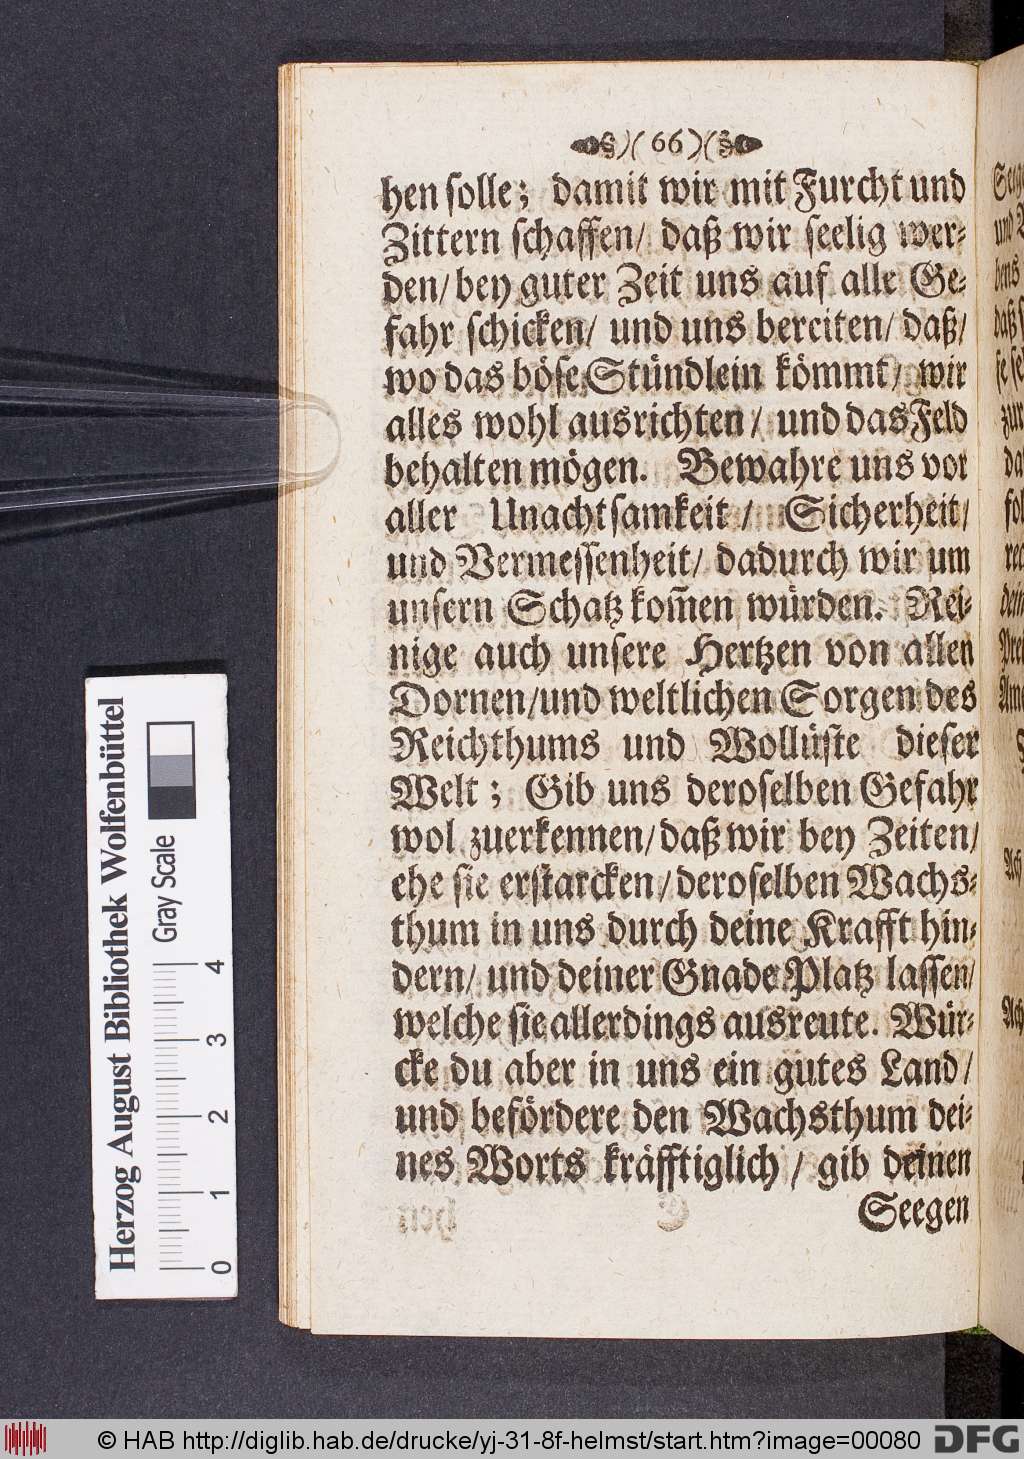 )( 66 )(
hen ſolle; damit wir mit Furcht und
Zittern ſchaffen/ daß wir ſeelig wer⸗
den/ bey guter Zeit uns auf alle Ge⸗
fahr ſchicken/ und uns bereiten/ daß/
wo das böſe Stündlein kömmt/ wir
alles wohl ausrichten/ und das Feld
behalten mögen. Bewahre uns vor
aller Unachtſamkeit/ Sicherheit/
und Vermeſſenheit/ dadurch wir um
unſern Schatz kom̃en würden. Rei⸗
nige auch unſere Hertzen von allen
Dornen/und weltlichen Sorgen des
Reichthums und Wollüſte dieſer
Welt; Gib uns deroſelben Gefahr
wol zuerkennen/ daß wir bey Zeiten/
ehe ſie erſtarcken/ deroſelben Wachs⸗
thum in uns durch deine Krafft hin⸗
dern/ und deiner Gnade Platz laſſen/
welche ſie allerdings ausreute. Wür⸗
cke du aber in uns ein gutes Land/
und befördere den Wachsthum dei⸗
nes Worts kräfftiglich/ gib deinen
Seegen
Seege
und
bens
daß
ſe
zur
da
fol
rec
dein
Prei
Ame
Ach
Ach
Herzog August Bibliothek Wolfenbüttel
Gray Scale
0 1 2 3 4
© HAB http://diglib.hab.de/drucke/yj-31-8f-helmst/start.htm?image=00080
DFG